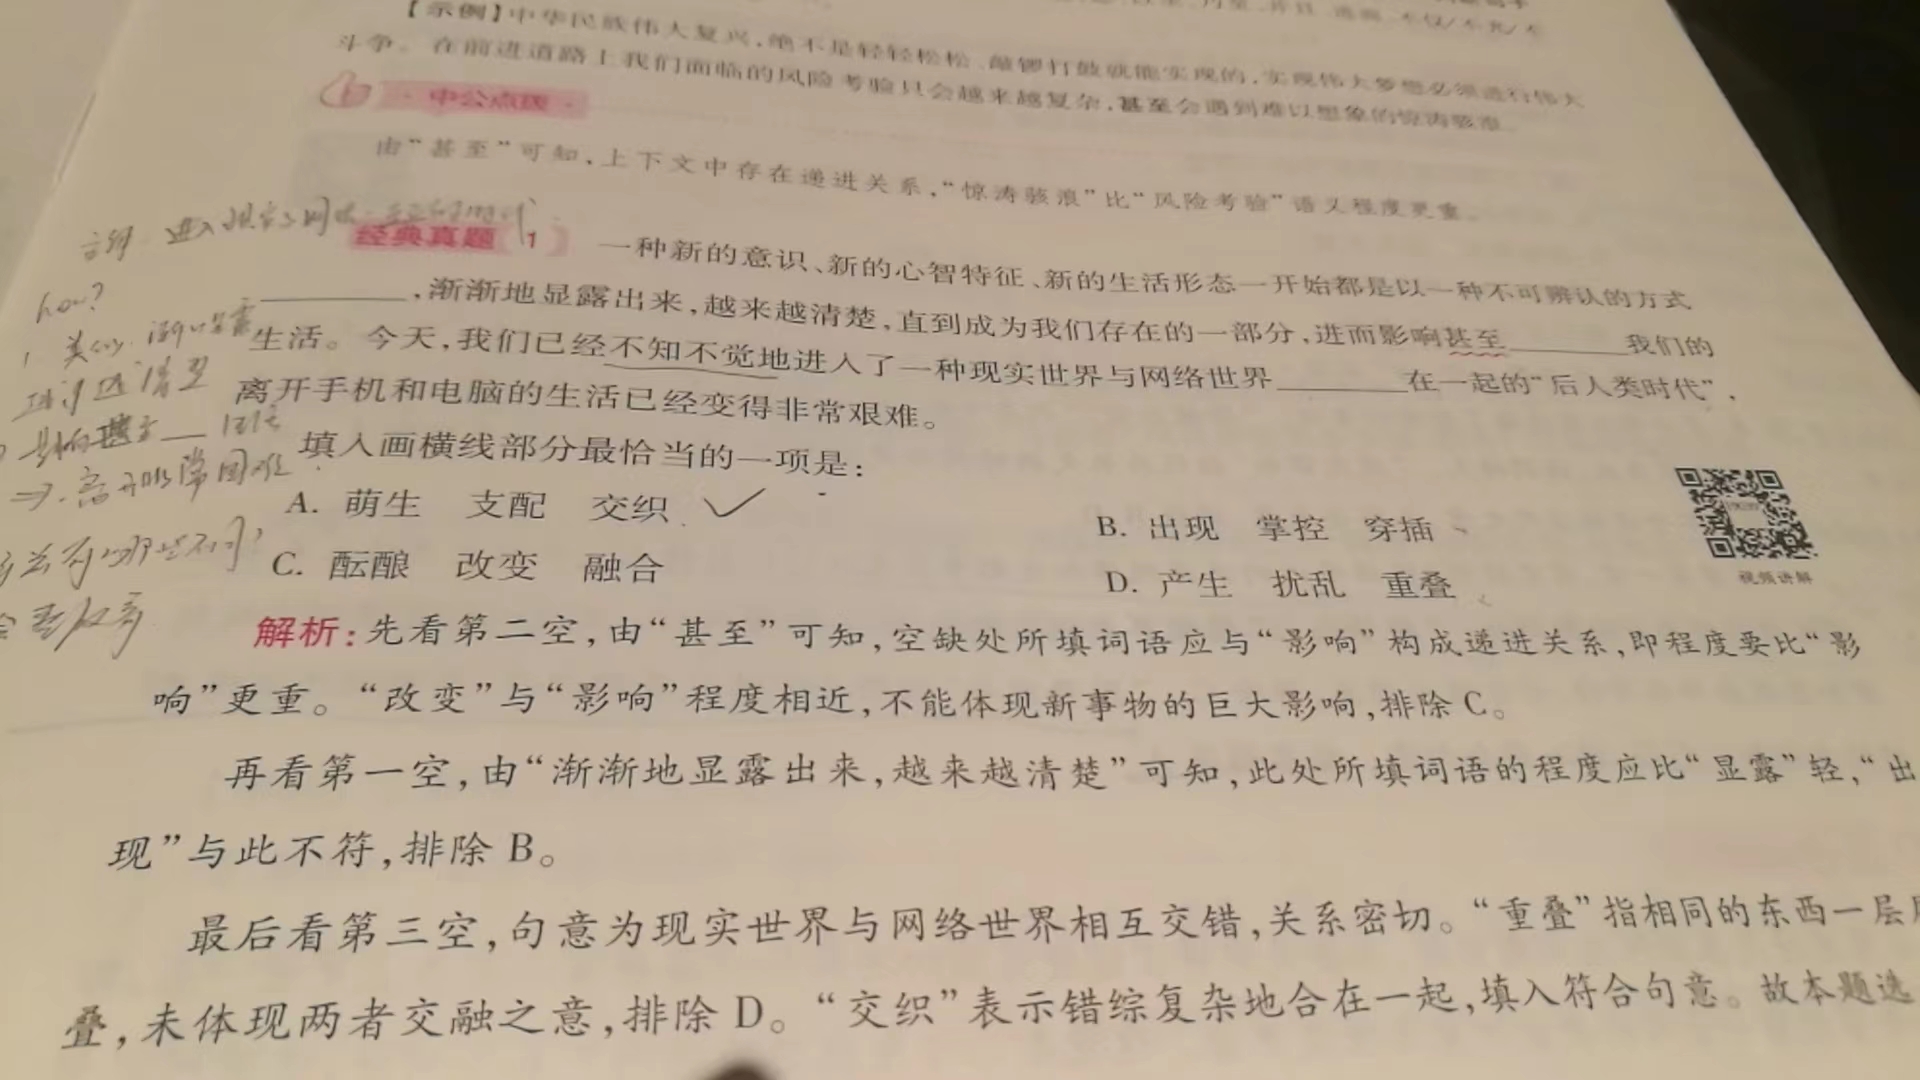 【示例】中华民族伟大复兴,绝不是轻轻松松、敲锣打鼓就能实现的,实现伟大梦想必须进行伟大
斗争。在前进道路上我们面临的风险考验只会越来越复杂,甚至会遇到难以想象的惊涛骇浪。
中公点拨
由“甚至”可知,上下文中存在递进关系,“惊涛骇浪”比“风险考验”语义程度更重。
经典真题 1 一种新的意识、新的心智特征、新的生活形态一开始都是以一种不可辨认的方式
________,渐渐地显露出来,越来越清楚,直到成为我们存在的一部分,进而影响甚至________我们的
生活。今天,我们已经不知不觉地进入了一种现实世界与网络世界________在一起的“后人类时代”,
离开手机和电脑的生活已经变得非常艰难。
how?
填入画横线部分最恰当的一项是:
A. 萌生 支配 交织
B. 出现 掌控 穿插
C. 酝酿 改变 融合
D. 产生 扰乱 重叠
视频讲解
解析:先看第二空,由“甚至”可知,空缺处所填词语应与“影响”构成递进关系,即程度要比“影
响”更重。“改变”与“影响”程度相近,不能体现新事物的巨大影响,排除C。
再看第一空,由“渐渐地显露出来,越来越清楚”可知,此处所填词语的程度应比“显露”轻,“出
现”与此不符,排除 B。
最后看第三空,句意为现实世界与网络世界相互交错,关系密切。“重叠”指相同的东西一层
叠,未体现两者交融之意,排除 D。“交织”表示错综复杂地合在一起,填入符合句意。故本题选